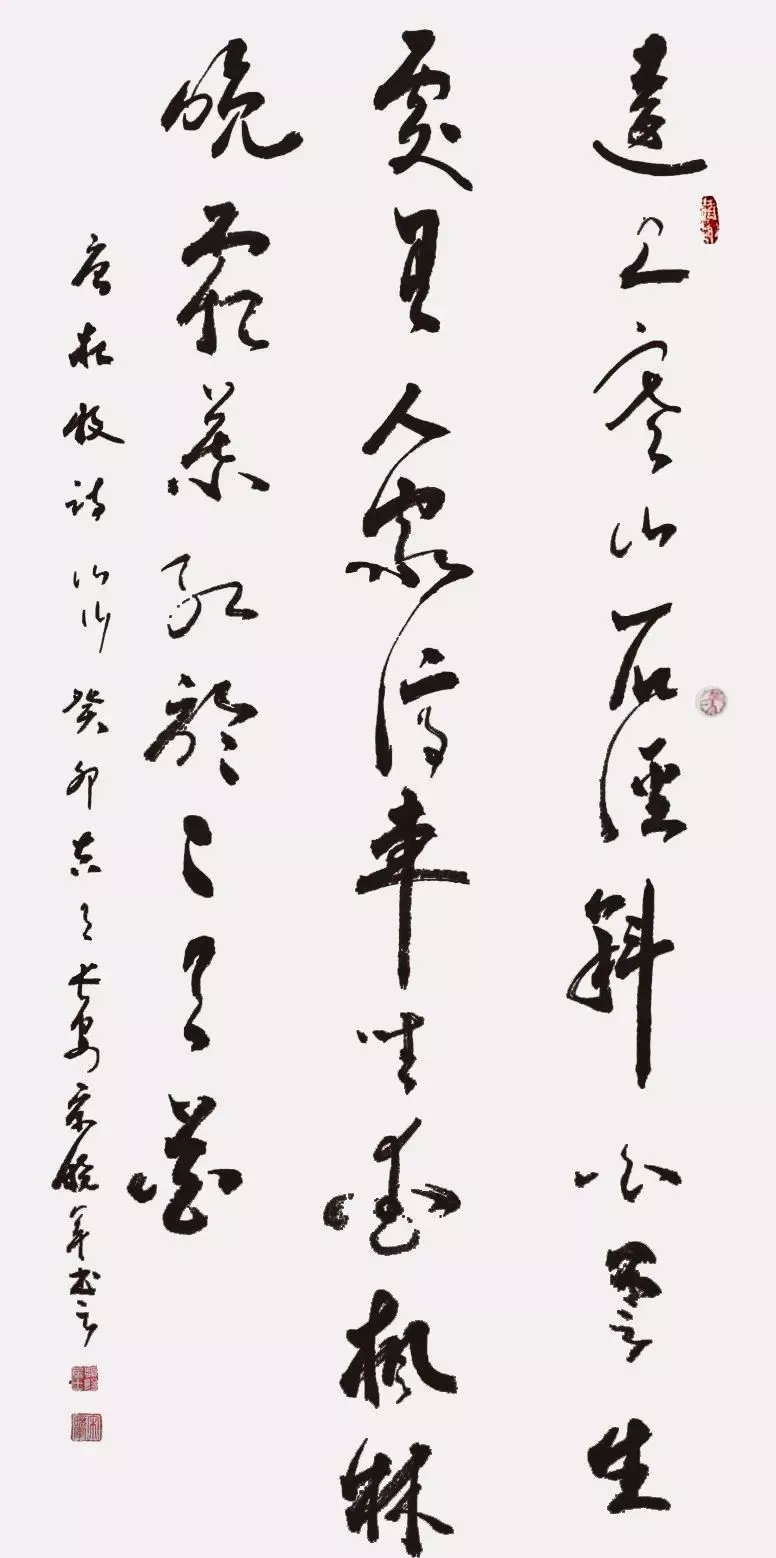 遠上寒山石徑斜白雲生
處有人家停車坐愛楓林
晚霜葉紅於二月花
唐杜牧詩山行癸卯長安